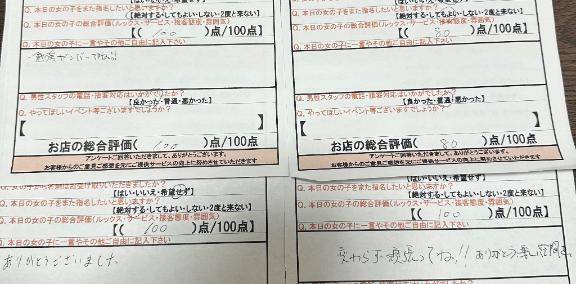 【はい・いいえ・希望せず】
Q. 本日の女の子をまた指名したいと思いますか?
【絶対する・してもよい・しない・2度と来ない】
Q. 本日の女の子の総合評価(ルックス・サービス・接客態度・雰囲気)
【( 100 )点/100点】
Q. 本日の女の子に一言やその他ご自由に記入下さい
Q. 男性スタッフの電話・接客対応はいかがでしたか?
【良かった・普通・悪かった】
Q. やってほしいイベント等ございますでしょうか?
【 】
お店の総合評価( 100 )点/100点
アンケートご回答いただきまして、ありがとうございます。
お客様からのご意見ご感想を元にご提供サービスの向上に努めさせていただきます
Q. 本日の女の子をまた指名したいと思いますか?
【絶対する・してもよい・しない・2度と来ない】
Q. 本日の女の子の総合評価(ルックス・サービス・接客態度・雰囲気)
【( 80 )点/100点】
Q. 本日の女の子に一言やその他ご自由に記入下さい
Q. 男性スタッフの電話・接客対応はいかがでしたか?
【良かった・普通・悪かった】
Q. やってほしいイベント等ございますでしょうか?
【 】
お店の総合評価( 80 )点/100点
アンケートご回答いただきまして、ありがとうございます。
お客様からのご意見ご感想を元にご提供サービスの向上に努めさせていただきます
【はい・いいえ・希望せず】
Q. 本日の女の子をまた指名したいと思いますか?
【絶対する・してもよい・しない・2度と来ない】
Q. 本日の女の子の総合評価(ルックス・サービス・接客態度・雰囲気)
【( 100 )点/100点】
Q. 本日の女の子に一言やその他ご自由に記入下さい
ありがとうございました
Q. 本日の女の子をまた指名したいと思いますか?
【絶対する・してもよい・しない・2度と来ない】
Q. 本日の女の子の総合評価(ルックス・サービス・接客態度・雰囲気)
【( 100 )点/100点】
Q. 本日の女の子に一言やその他ご自由に記入下さい
変わらず頑張ってね!! ありがとう